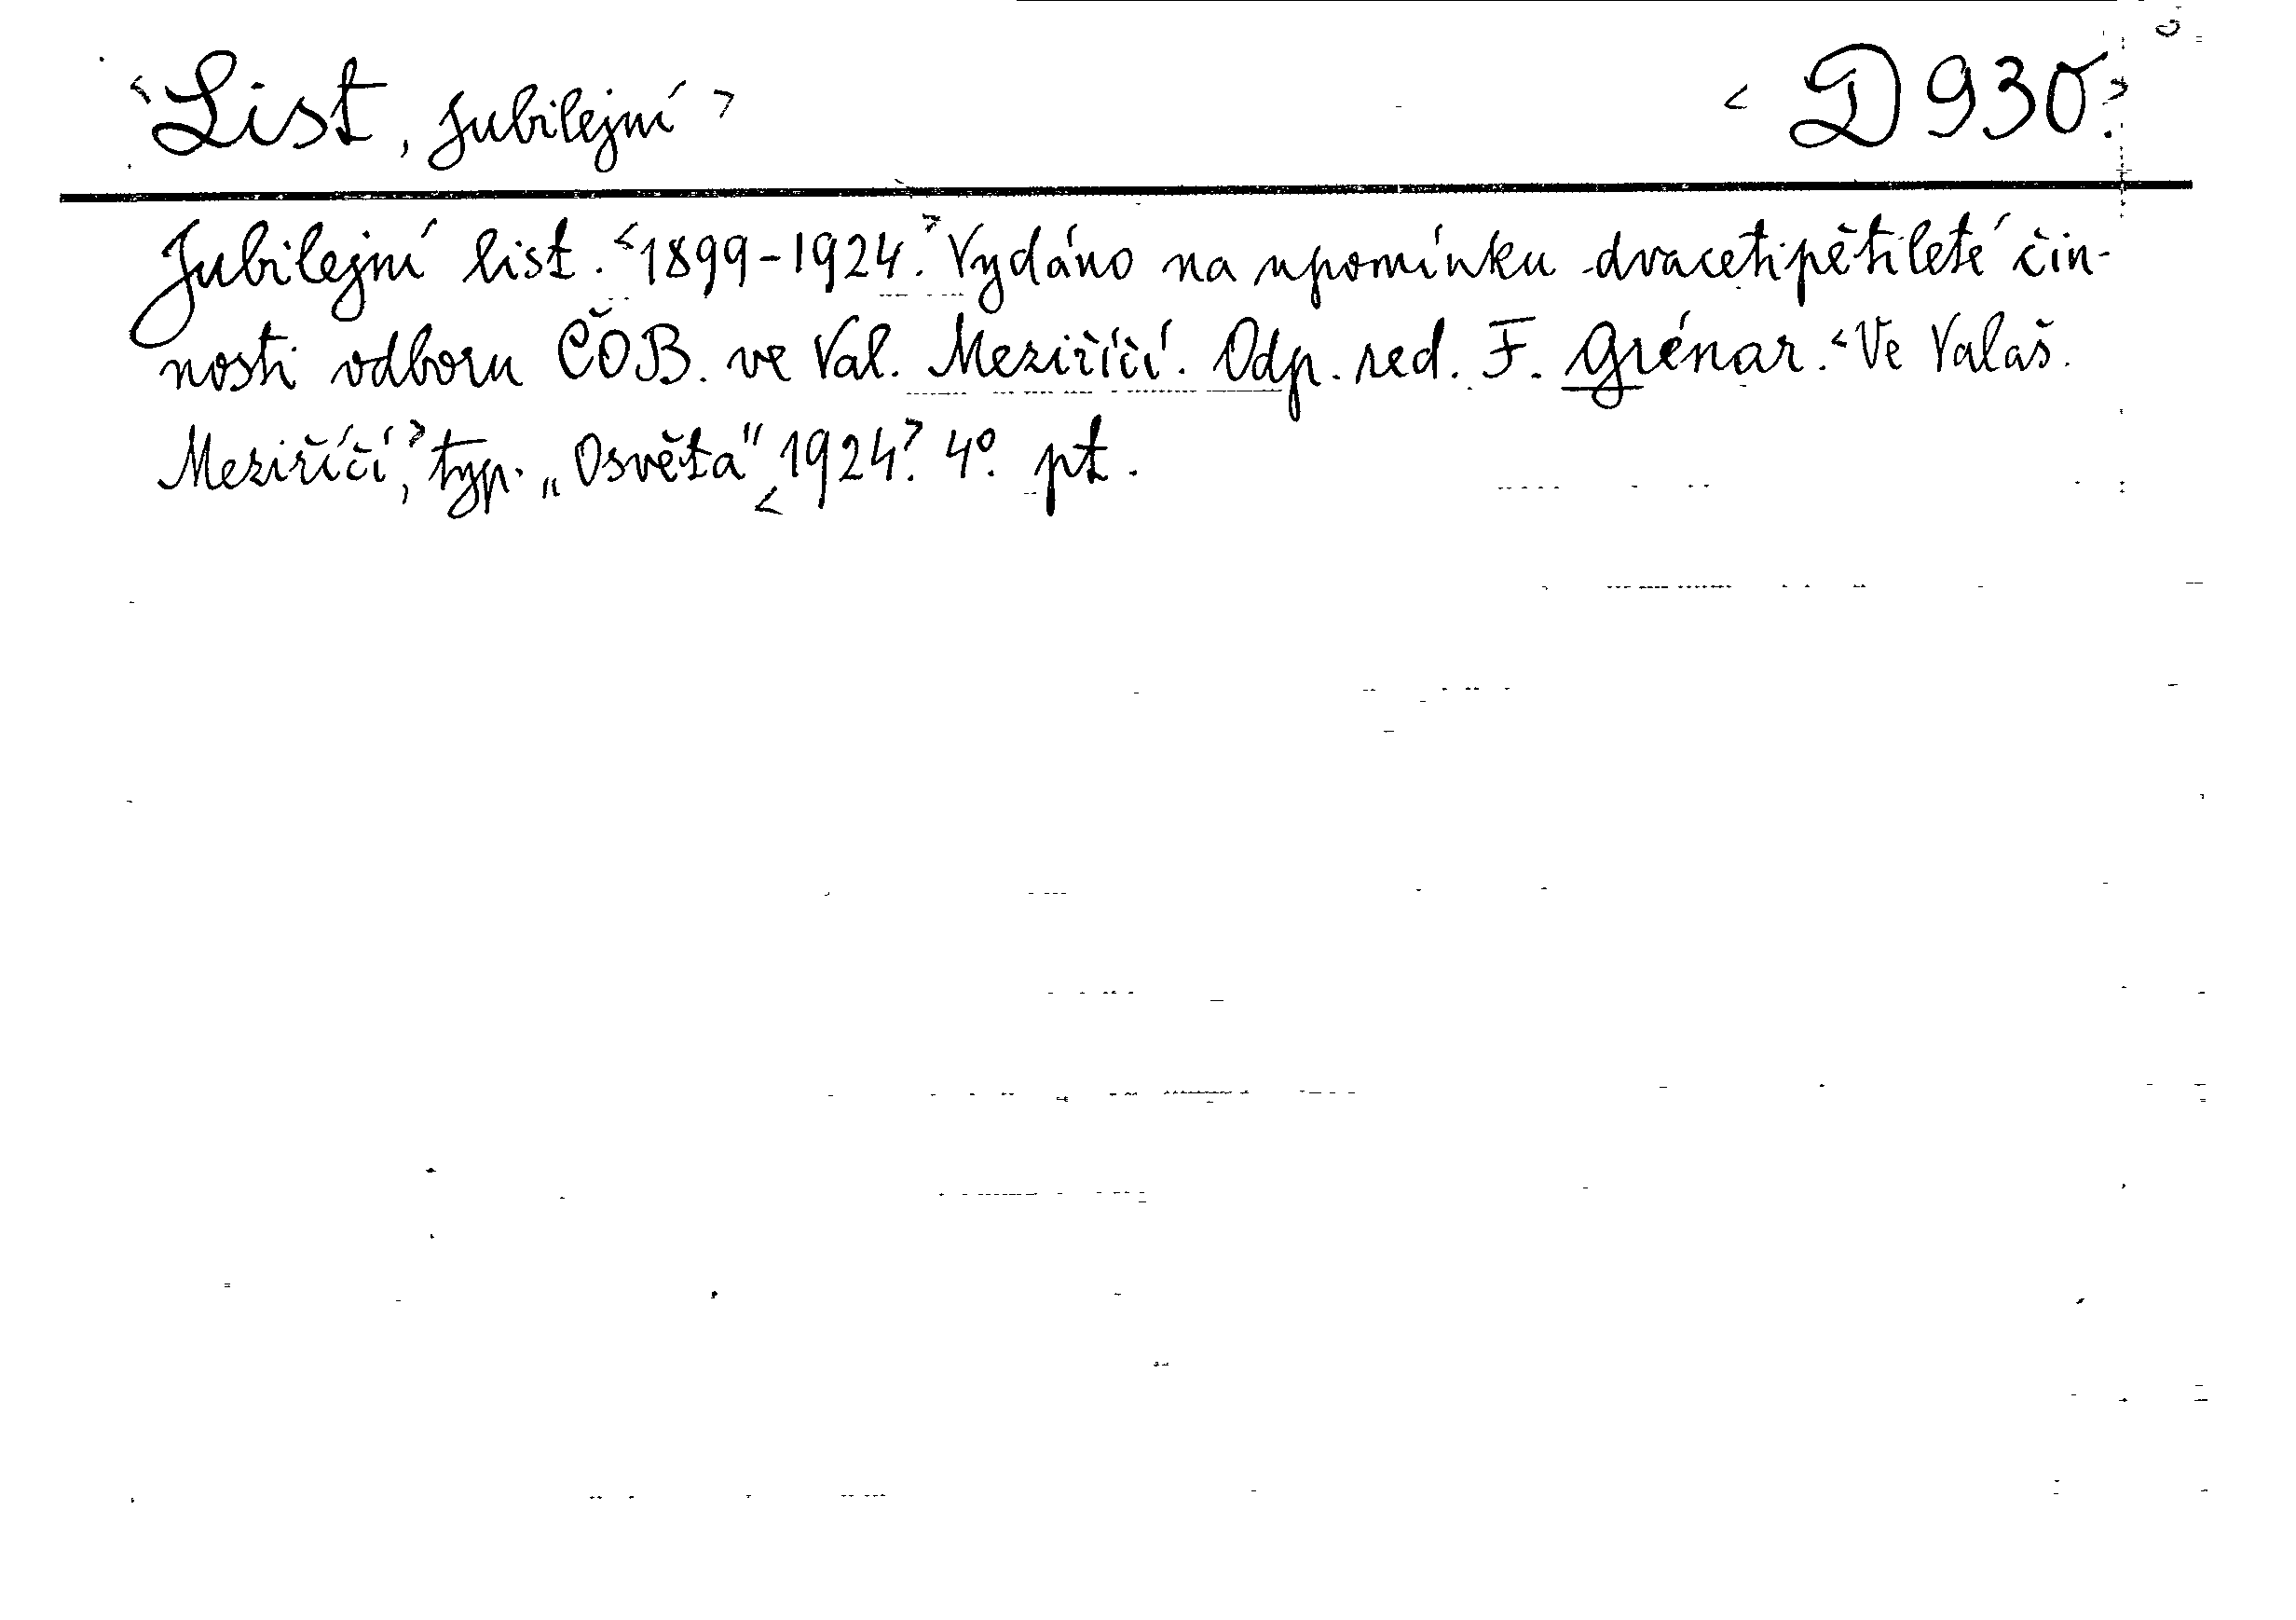 <List, Jubilejní> <D 930.>
Jubilejní list. <1899-1924.> Vydáno na upomínku dvacetipětileté čin-
nosti odboru ČOB. ve Val. Meziříčí. Odp. red. F. Grénar. <Ve Valaš.
Meziříčí,> typ. „Osvěta" <1924>. 4°. pt.